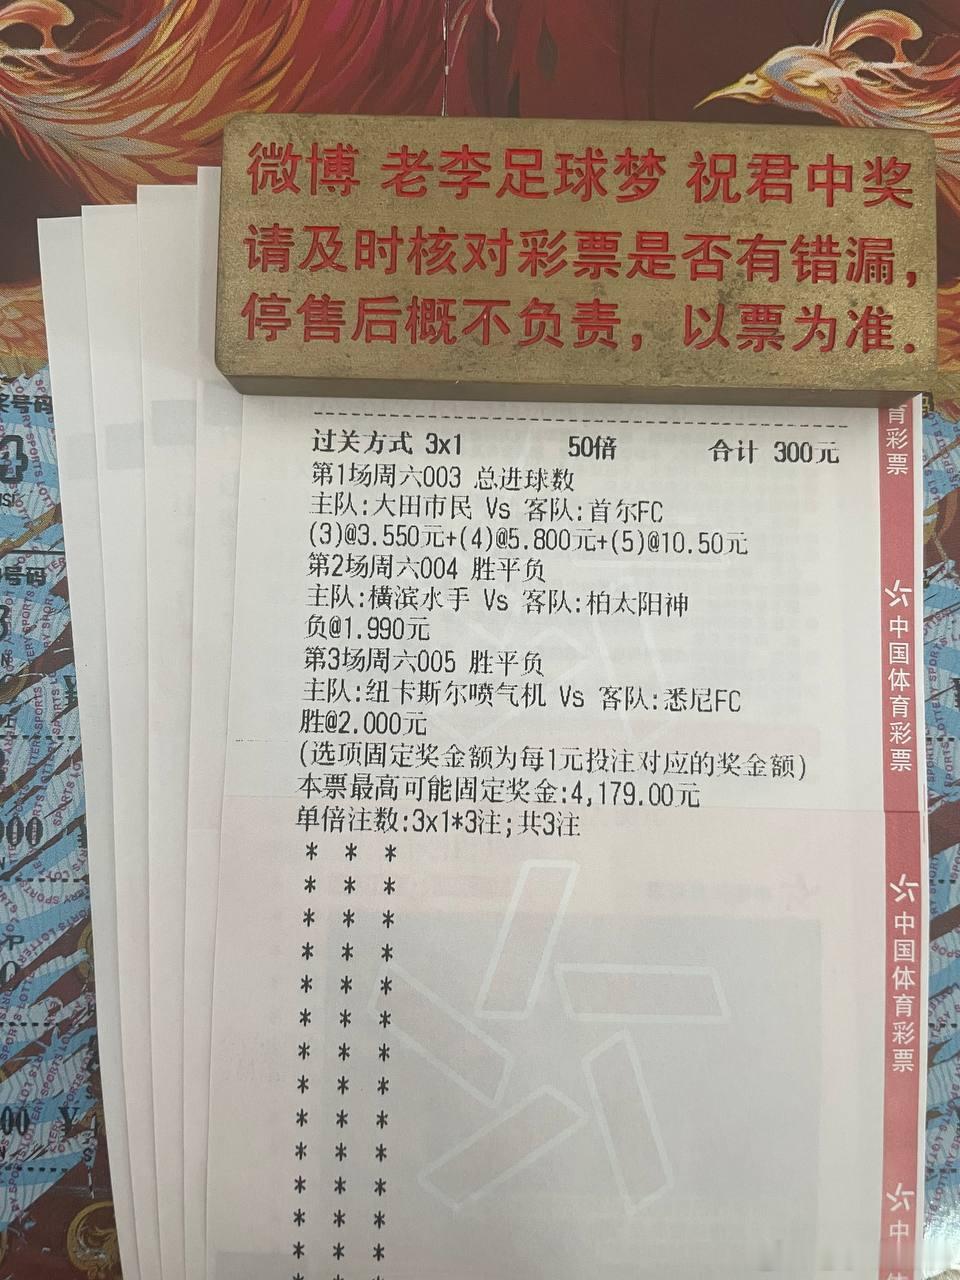 微博 老李足球梦 祝君中奖
请及时核对彩票是否有错漏，
停售后概不负责，以票为准.
过关方式 3x1 50倍 合计 300元
第1场周六003 总进球数
主队:大田市民 Vs 客队:首尔FC
(3)@3.550元+(4)@5.800元+(5)@10.50元
第2场周六004 胜平负
主队:横滨水手 Vs 客队:柏太阳神
负@1.990元
第3场周六005 胜平负
主队:纽卡斯尔喷气机 Vs 客队:悉尼FC
胜@2.000元
(选项固定奖金额为每1元投注对应的奖金额)
本票最高可能固定奖金:4,179.00元
单倍注数:3x1*3注;共3注
* * *
* * *
* * *
* * *
* * *
* * *
* * *
* * *
* * *
* * *
* * *
* * *
* * *
育彩票
中国体育彩票
中国体育彩票
中